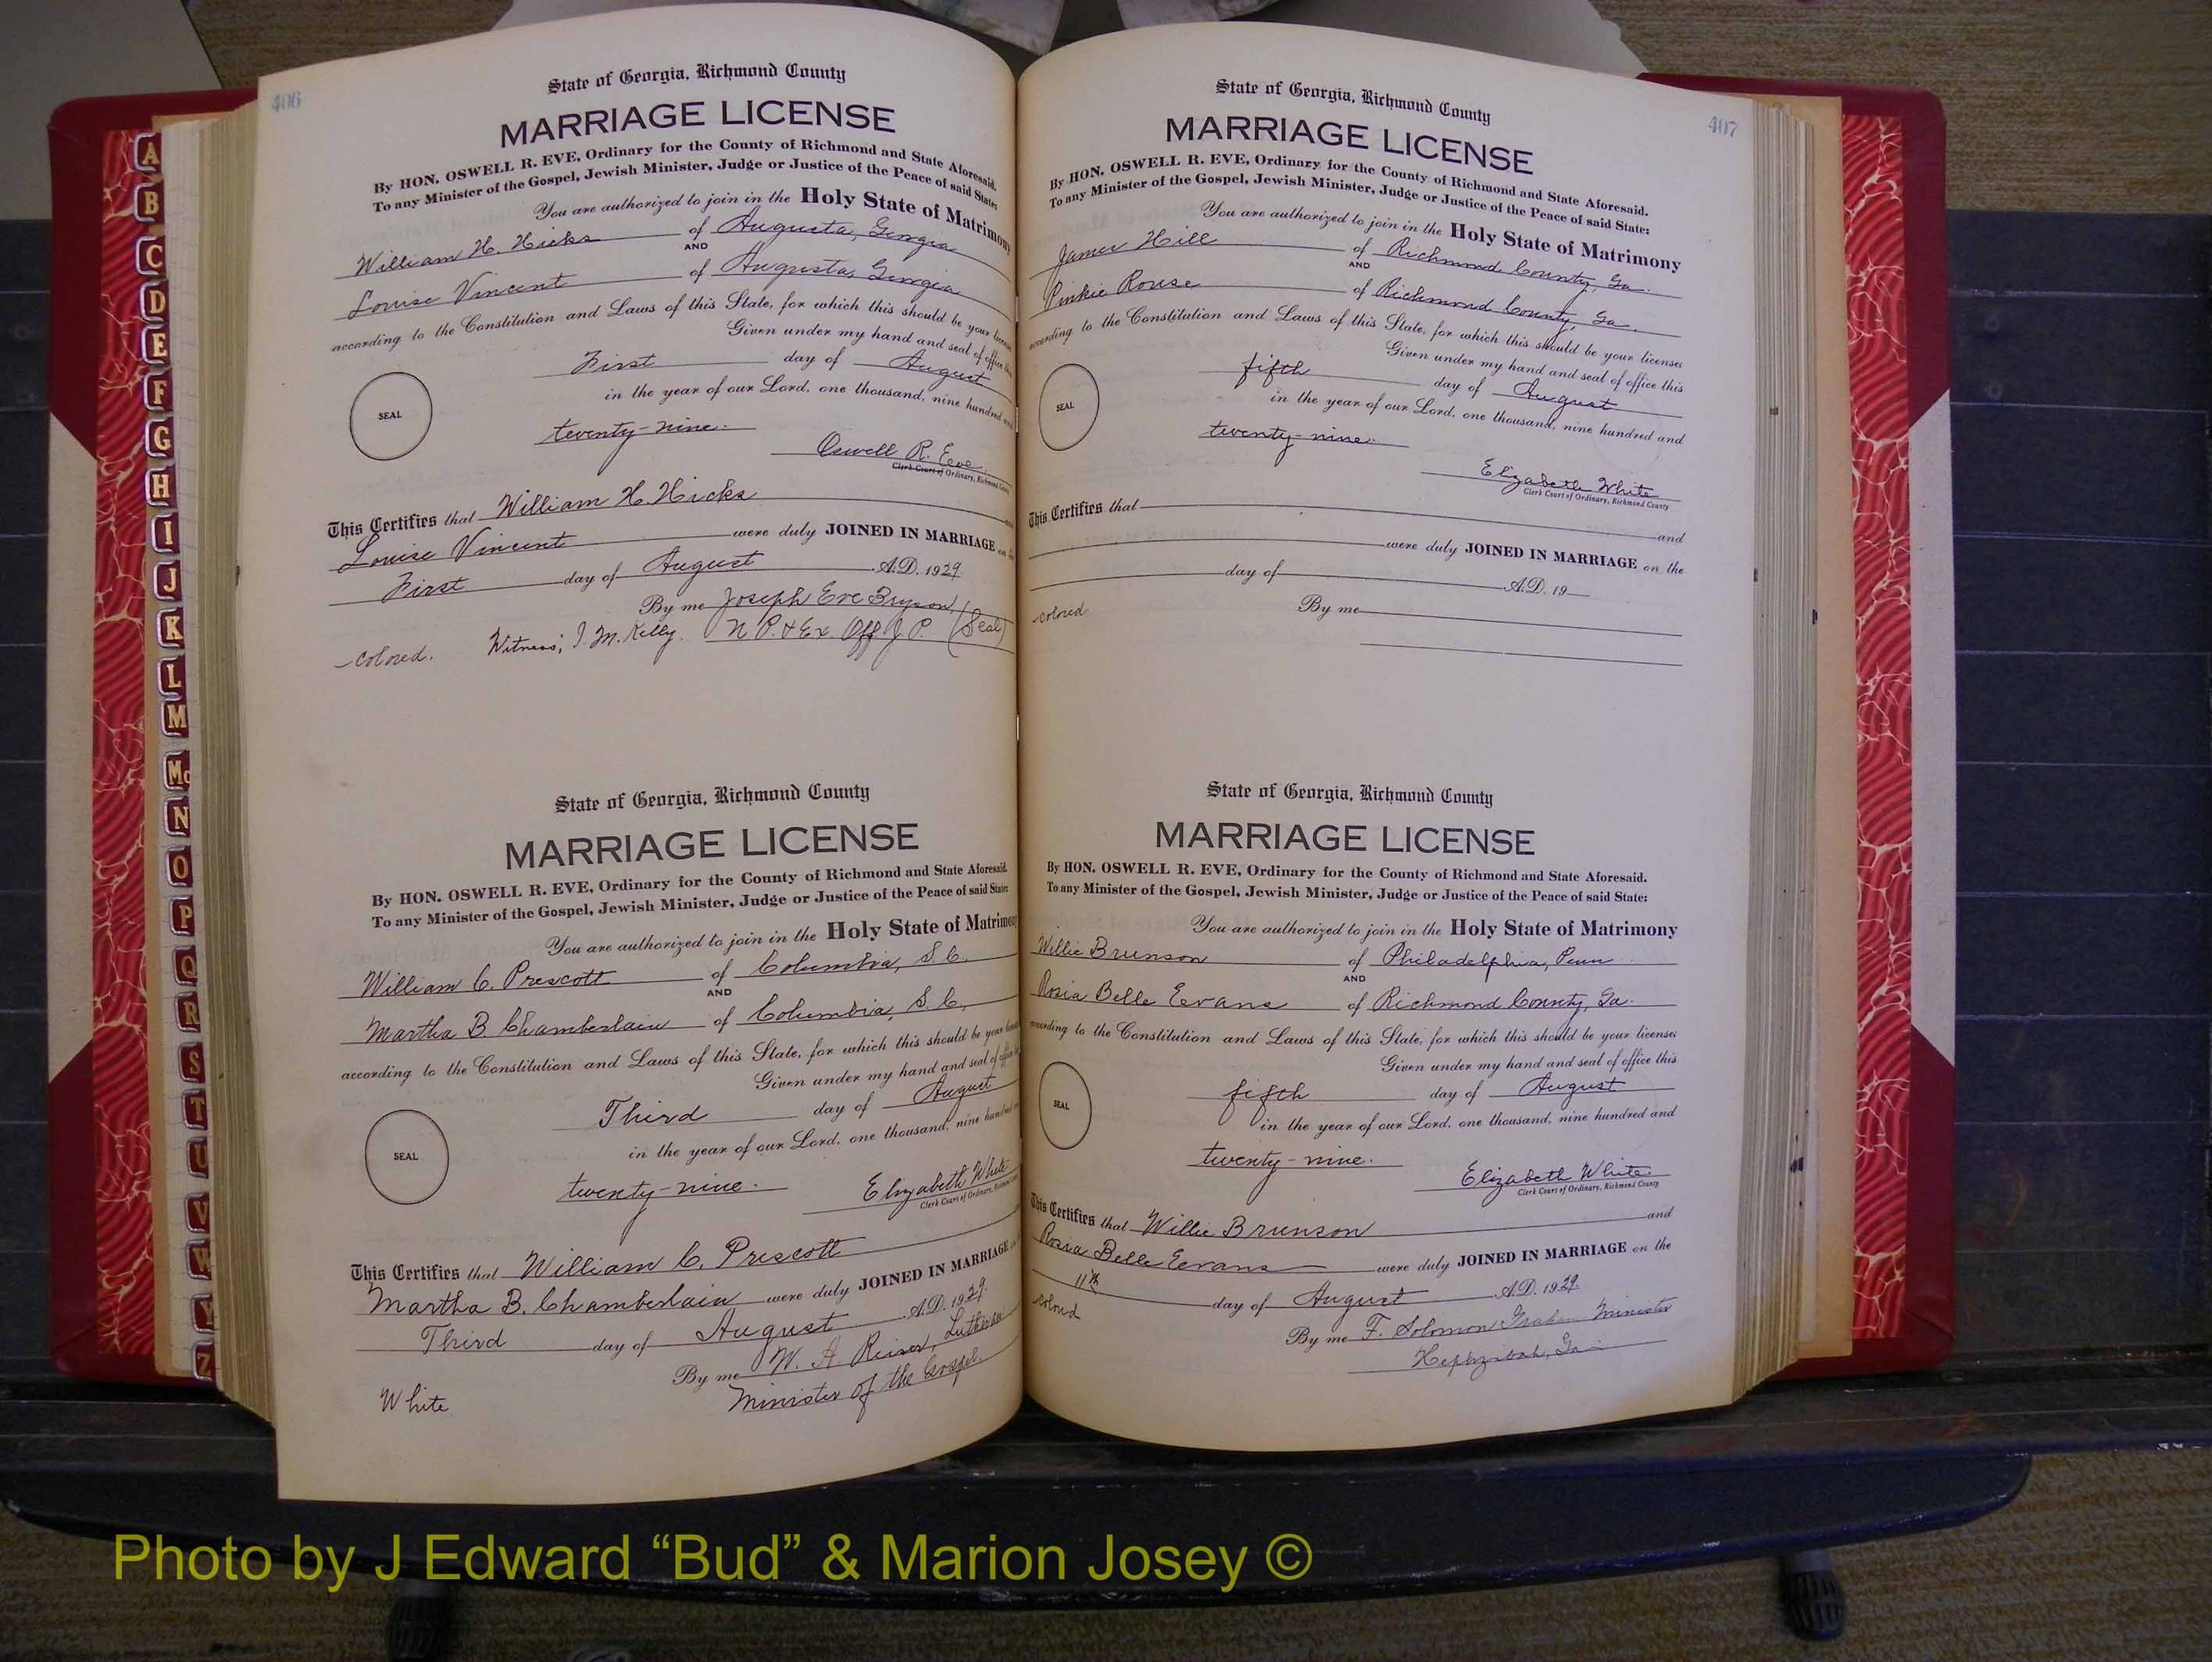 406
State of Georgia, Richmond County
MARRIAGE LICENSE
By HON. OSWELL R. EVE, Ordinary for the County of Richmond and State Aforesaid.
To any Minister of the Gospel, Jewish Minister, Judge or Justice of the Peace of said State:
You are authorized to join in the Holy State of Matrimony
William H. Hicks of Augusta, Georgia
AND
Louise Vincent of Augusta, Georgia
according to the Constitution and Laws of this State, for which this should be your license
Given under my hand and seal of office this
First day of August
in the year of our Lord, one thousand, nine hundred and
SEAL
twenty-nine.
Oswell R. Eve
Clerk Court of Ordinary, Richmond County
This Certifies that William H. Hicks and
Louise Vincent were duly JOINED IN MARRIAGE on the
First day of August A.D. 1929
By me Joseph Eve Bryson,
colored. Witness; J. M. Kelly. N P. & Ex. Off J. P. (Seal)
State of Georgia, Richmond County
MARRIAGE LICENSE
By HON. OSWELL R. EVE, Ordinary for the County of Richmond and State Aforesaid.
To any Minister of the Gospel, Jewish Minister, Judge or Justice of the Peace of said State:
You are authorized to join in the Holy State of Matrimony
William C. Prescott of Columbia, S. C.
AND
Martha B. Chamberlain of Columbia, S. C.
according to the Constitution and Laws of this State, for which this should be your license
Given under my hand and seal of office
Third day of August
in the year of our Lord, one thousand, nine hundred
SEAL
twenty-nine.
Elizabeth White
Clerk Court of Ordinary, Richmond County
This Certifies that William C. Prescott
Martha B. Chamberlain were duly JOINED IN MARRIAGE
Third day of August A.D. 1929.
By me W. A. Reiser, Lutheran
White Minister of the Gospel.
407
State of Georgia, Richmond County
MARRIAGE LICENSE
By HON. OSWELL R. EVE, Ordinary for the County of Richmond and State Aforesaid.
To any Minister of the Gospel, Jewish Minister, Judge or Justice of the Peace of said State:
You are authorized to join in the Holy State of Matrimony
James Hill of Richmond County, Ga.
AND
Pinkie Rouse of Richmond County, Ga.
according to the Constitution and Laws of this State, for which this should be your licenses
Given under my hand and seal of office this
fifth day of August
in the year of our Lord, one thousand, nine hundred and
SEAL
twenty-nine.
Elizabeth White
Clerk Court of Ordinary, Richmond County
This Certifies that
and
were duly JOINED IN MARRIAGE on the
day of A.D. 19
colored By me
State of Georgia, Richmond County
MARRIAGE LICENSE
By HON. OSWELL R. EVE, Ordinary for the County of Richmond and State Aforesaid.
To any Minister of the Gospel, Jewish Minister, Judge or Justice of the Peace of said State:
You are authorized to join in the Holy State of Matrimony
Willie Brunson of Philadelphia, Penn
AND
Rosia Belle Eevans of Richmond County, Ga.
according to the Constitution and Laws of this State, for which this should be your license:
Given under my hand and seal of office this
fifth day of August
in the year of our Lord, one thousand, nine hundred and
SEAL
twenty-nine.
Elizabeth White
Clerk Court of Ordinary, Richmond County
This Certifies that Willie Brunson and
Rosia Belle Eevans were duly JOINED IN MARRIAGE on the
11th day of August A.D. 1929.
colored By me F. Solomon Graham Minister
Hephzibah, Ga
A
B
C
D
E
F
G
H
I
J
K
L
M
Mc
N
O
P
Q
R
S
T
U
V
W
Y
Z
Photo by J Edward “Bud” & Marion Josey ©